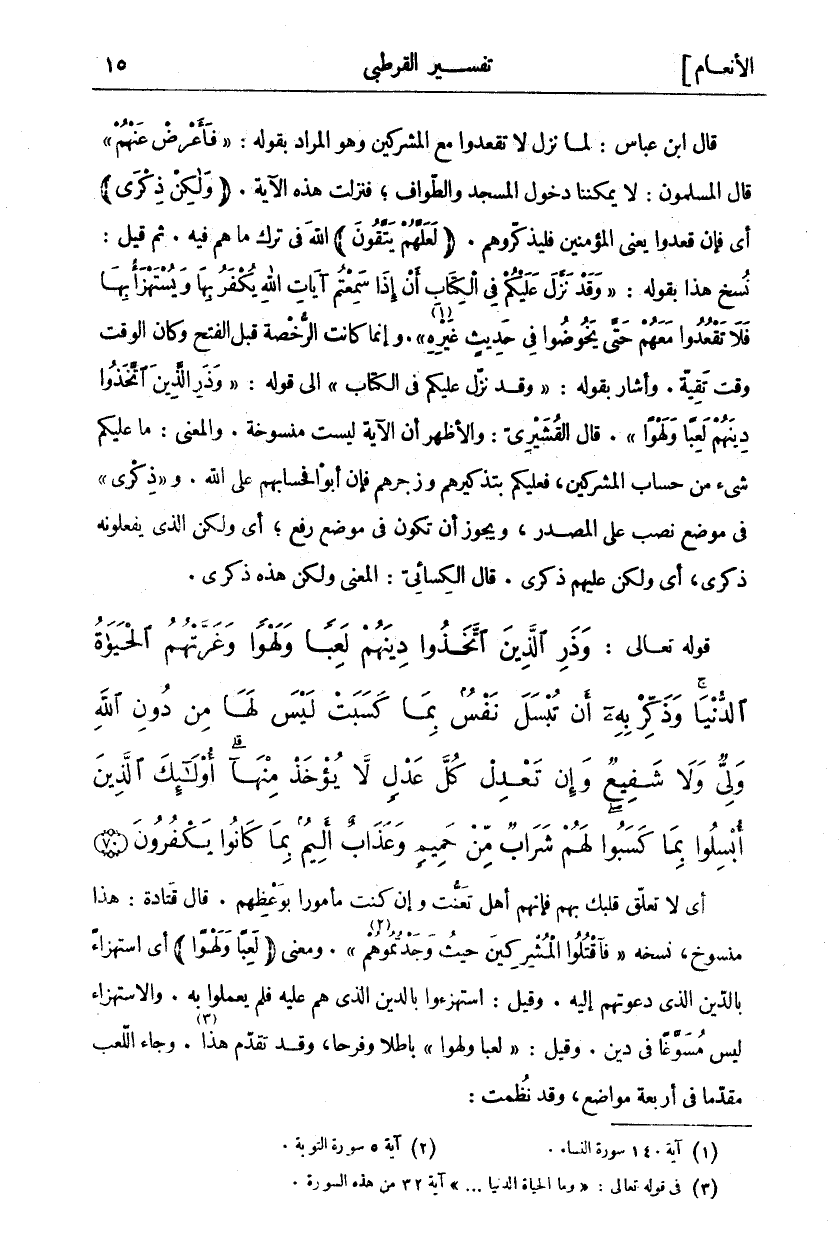 الأنعـام] تفســـير القرطبى ١٥
قال ابن عباس : لمـا نزل لا تقعدوا مع المشركين وهو المراد بقوله : « فَأَعْرِضْ عَنْهُمْ »
قال المسلمون : لا يمكننا دخول المسجد والطّواف ؛ فنزلت هذه الآية . ﴿ وَلٰكِنْ ذِكْرَى ﴾
أى فإن قعدوا يعنى المؤمنين فليذكّروهم . ﴿ لَعَلَّهُمْ يَتَّقُونَ ﴾ اللهَ فى ترك ما هم فيه . ثم قيل :
نُسخ هذا بقوله : « وَقَدْ نَزَّلَ عَلَيْكُمْ فِى الْكِتَابِ أَنْ إِذَا سَمِعْتُمْ آيَاتِ اللهِ يُكْفَرُ بِهَا وَيُسْتَهْزَأُ بِهَـا
فَلَا تَقْعُدُوا مَعَهُمْ حَتَّى يَخُوضُوا فِى حَدِيثٍ غَيْرِهِ(١) » . وإنما كانت الرُّخْصة قبل الفتح وكان الوقت
وقت تَقِيّة . وأشار بقوله : « وقـد نزّل عليكم فى الكتاب » الى قوله : « وَذَرِ الَّذِينَ ٱتَّخَذُوا
دِينَهُمْ لَعِبًا وَلَهْوًا » . قال القُشَيْرِىّ : والأظهر أن الآية ليست منسوخة . والمعنى : ما عليكم
شىء من حساب المشركين، فعليكم بتذكيرهم وزجرهم فإن أبوْا فحسابهم على الله . و « ذِكْرى »
فى موضع نصب على المصـدر ، ويجوز أن تكون فى موضع رفع ؛ أى ولكن الذى يفعلونه
ذكرى، أى ولكن عليهم ذكرى . قال الكسائىّ : المعنى ولكن هذه ذكرى .
قوله تعـالى : وَذَرِ ٱلَّذِينَ ٱتَّخَـذُوا دِينَهُمْ لَعِبًـا وَلَهْوًا وَغَرَّتْهُـمُ ٱلْحَيَوٰةُ
ٱلدُّنْيَا ۚ وَذَكِّرْ بِهِۦٓ أَن تُبْسَلَ نَفْسٌۢ بِمَـا كَسَبَتْ لَيْسَ لَهَـا مِن دُونِ ٱللَّهِ
وَلِىٌّ وَلَا شَـفِيعٌ وَإِن تَعْـدِلْ كُلَّ عَدْلٍ لَّا يُؤْخَذْ مِنْهَـآ ۗ أُوْلَـٰٓئِكَ ٱلَّذِينَ
أُبْسِلُوا بِمَا كَسَبُوا ۖ لَهُمْ شَرَابٌ مِّنْ حَمِيمٍ وَعَذَابٌ أَلِيمٌۢ بِمَا كَانُوا يَكْفُرُونَ ﴿٧٠﴾
أى لا تعلّق قلبك بهم فإنهم أهل تعنُّت وإن كنت مأمورا بوَعْظِهم . قال قَتادة : هذا
منسوخ، نسخه « فَٱقْتُلُوا الْمُشْرِكِينَ حَيْثُ وَجَدْتُمُوهُمْ(٢) » . ومعنى ﴿ لَعِبًا وَلَهْوًا ﴾ أى استهزاءً
بالدّين الذى دعوتهم إليه . وقيل : استهزءوا بالدين الذى هم عليه فلم يعملوا به . والاستهزاء
ليس مُسَوَّغًا فى دين . وقيل : « لعبا ولهوا » باطلا وفرحا، وقـد تقدّم هذا(٣) . وجاء اللّعب
مقدّما فى أربعة مواضع، وقد نُظمت :
(١) آية ١٤٠ سورة النساء . (٢) آية ٥ سورة التوبة .
(٣) فى قوله تعالى : « وما الحياة الدنيا ... » آية ٣٢ من هذه السورة .